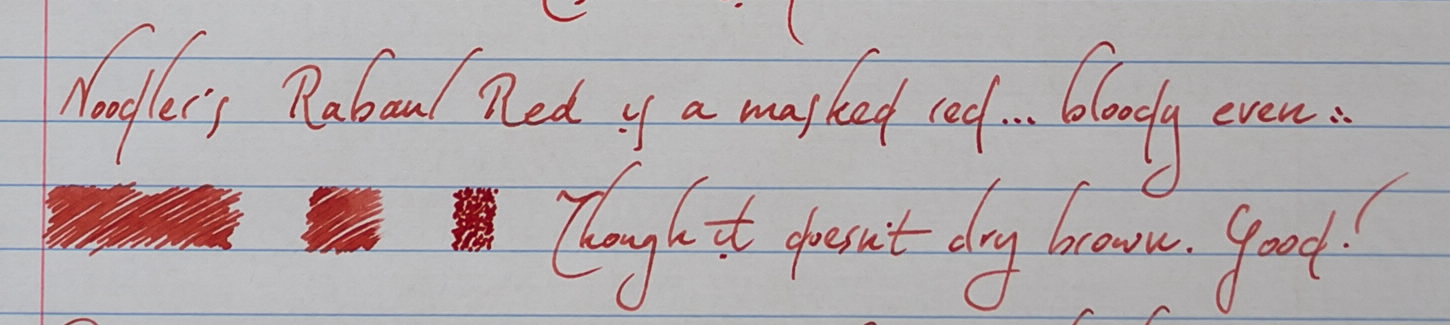 Noodler's Rabaul Red is a masked red... bloody even...
Though it doesn't dry brown. Good!